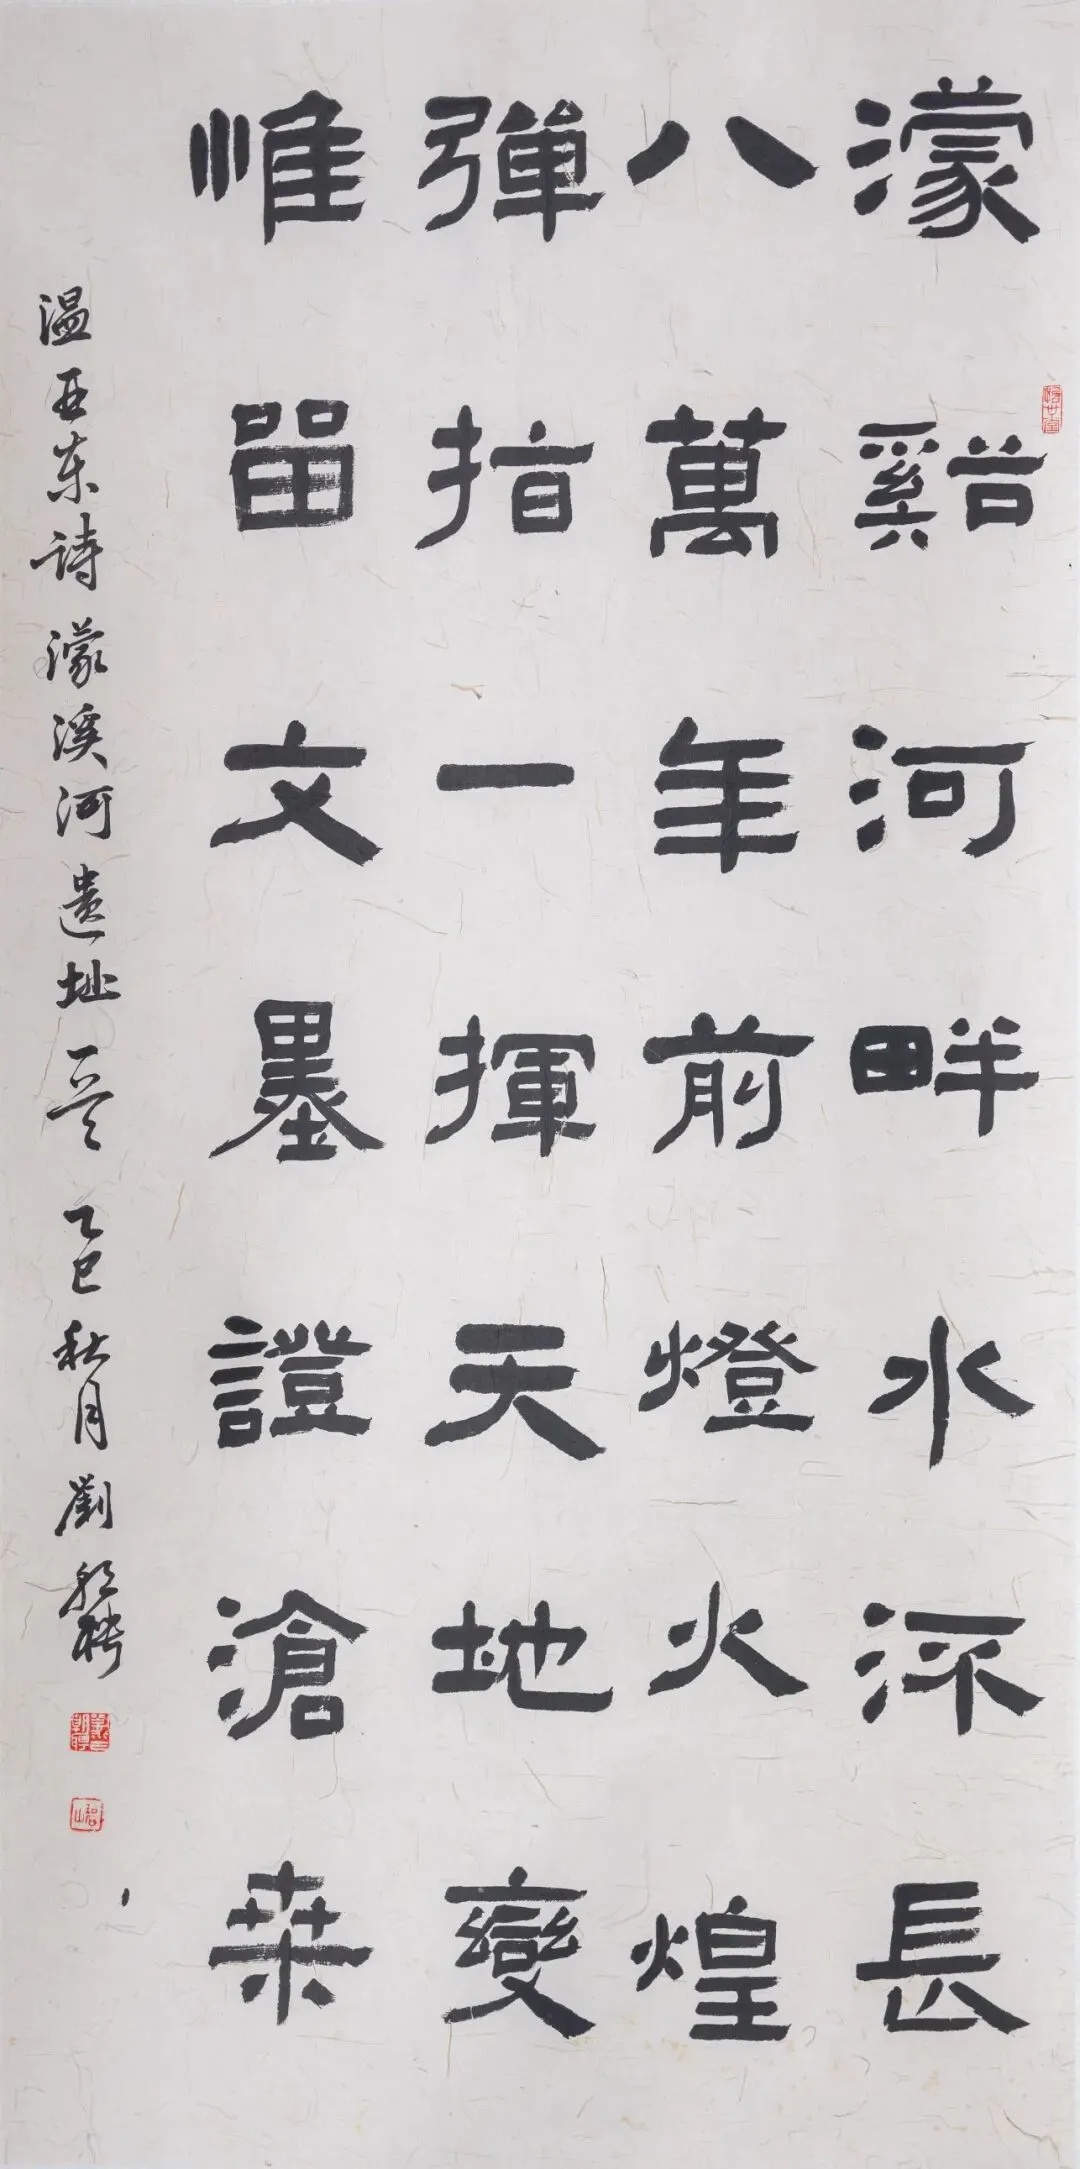 濛谿河畔水长
八萬年前燈火煌
彈指一揮天地變
惟留文墨證滄桒
温亚东诗濛溪河遗址 乙巳秋月劉朝聘